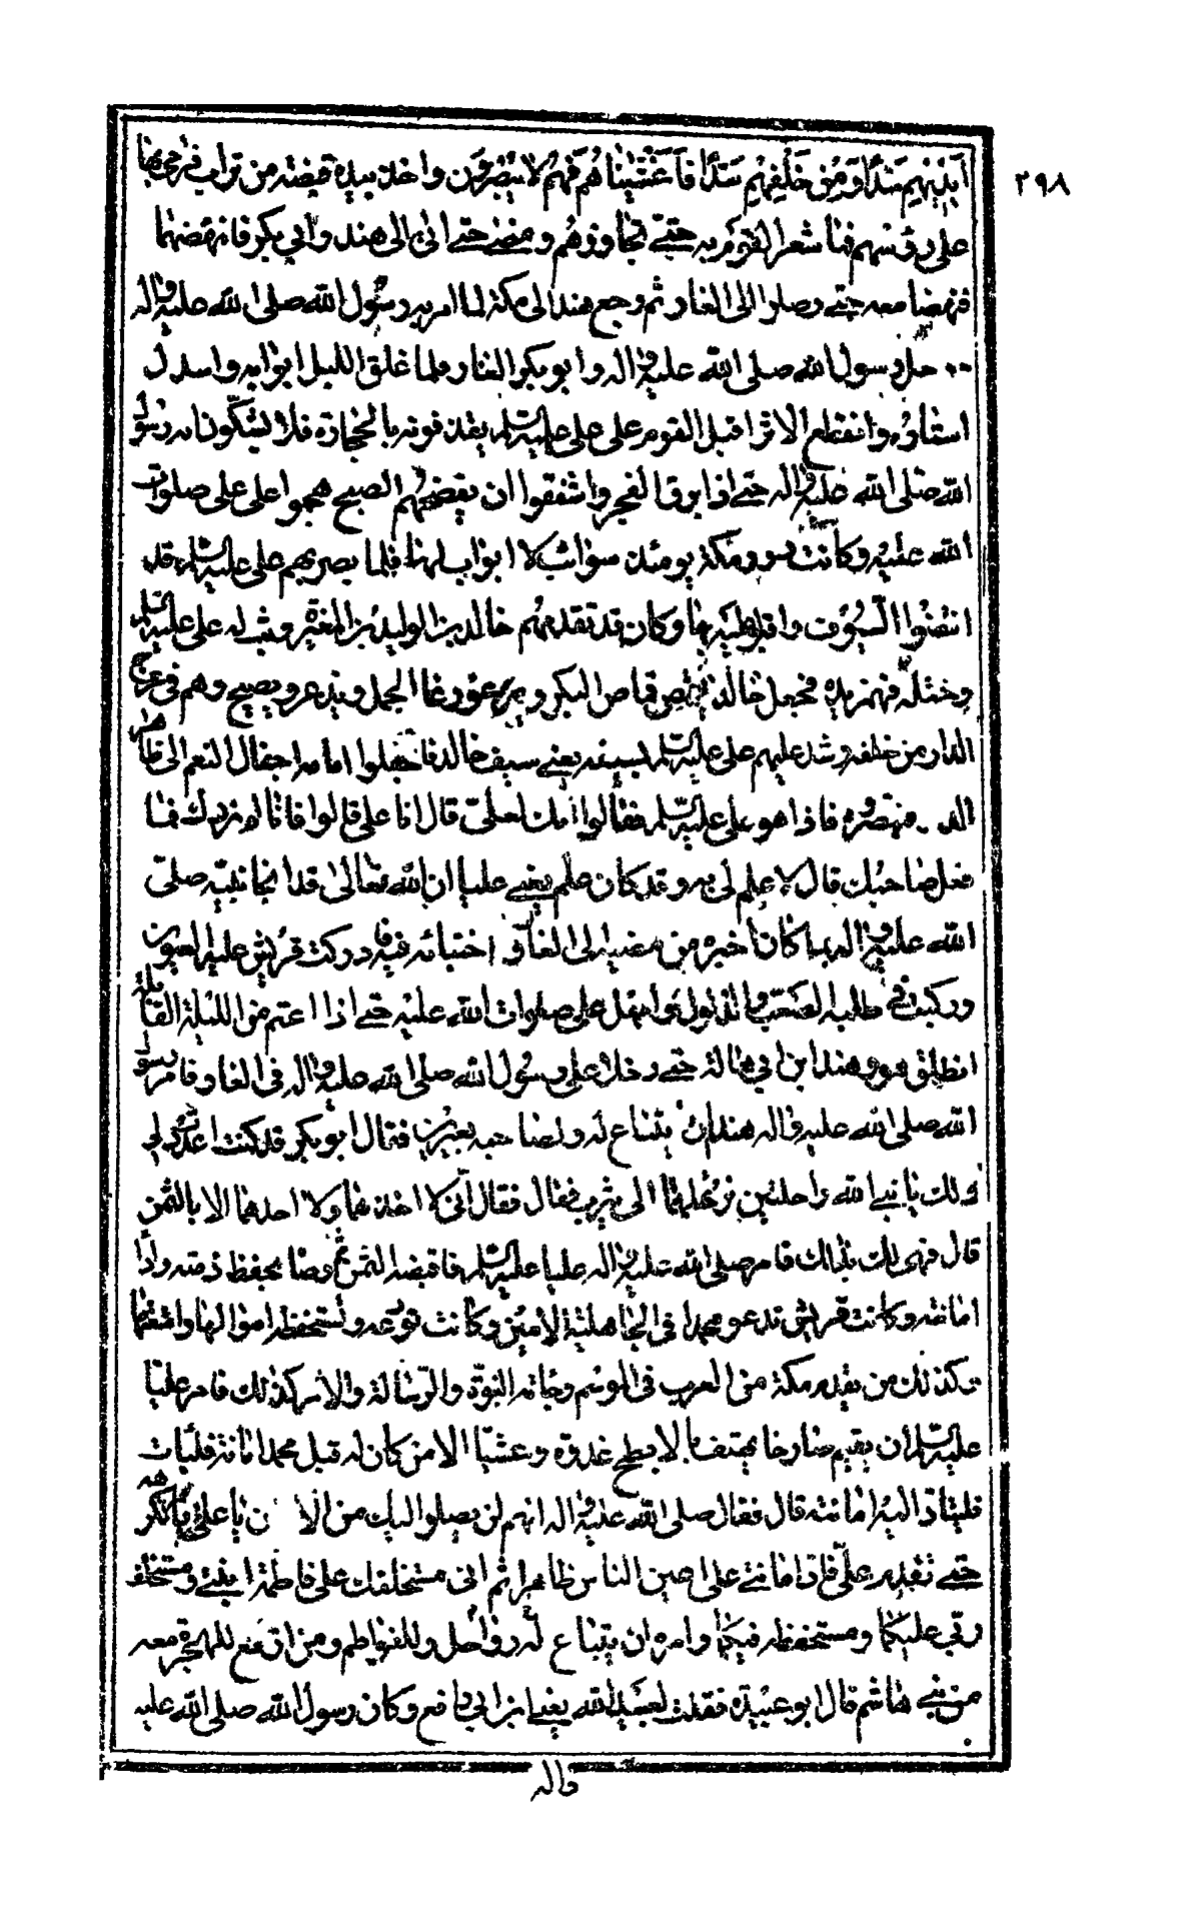 ٢٩٨
ايديهم سدا ومن خلفهم سدا فاغشيناهم فهم لا يبصرون واخذ بيده قبضة من تراب فرمى بها
على رؤسهم فما شعر القوم به حتى تجاوزهم ومضى حتى اتى الى هند وابي بكر فانهضهما
فنهضا معه حتى وصلوا الى الغار ثم رجع هند الى مكة لما امر به رسول الله صلى الله عليه واله
دخل رسول الله صلى الله عليه واله وابو بكر الغار ولما غلق الليل ابوابه واسدل
استاره وانقطع الاثر اقبل القوم على علي عليه السلم يقذفونه بالحجارة فلا يشكون انه رسول
الله صلى الله عليه واله حتى اذا برق الفجر واشفقوا ان يفضحهم الصبح هجموا على علي صلوات
الله عليه وكانت دور مكة يومئذ سوائب لا ابواب لها فلما بصر بهم علي عليه السلم قد
انتضوا السيوف واقبلوا عليه بها وكان قد تقدمهم خالد بن الوليد بن المغيرة وثب له علي عليه السلم
وختله فهمز يده فجعل خالد يقمص قماص البكر ويرغو رغا الجمل ويذعر ويصيح وهم في عرج
الدار من خلفه وشد عليهم علي عليه السلم بسيفه يعني سيف خالد فاجفلوا امامه اجفال النعم الى ظاهر
الدار فبتصروه فاذا هو علي عليه السلم فقالوا انك لعلي قال انا علي قالوا فانا لم نردك فما
فعل صاحبك قال لا علم لي به وقد كان علم يعني عليا ان الله تعالى قد انجا نبيه صلى
الله عليه واله بما كان اخبره من مضيه الى الغار واختبائه فيه فادركت قريش عليه العيون
وركبت في طلبه الصعب والذلول وامهل علي صلوات الله عليه حتى اذا اعتم من الليلة القابلة
انطلق هو وهند ابن ابي هالة حتى دخلا على رسول الله صلى الله عليه واله في الغار فامر رسول
الله صلى الله عليه واله هند ان يبتاع له ولصاحبه بعيرين فقال ابو بكر قد كنت اعددت لي
ولك يا نبي الله راحلتين نرتحلهما الى يثرب فقال فقال اني لا اخذهما ولا احدهما الا بالثمن
قال فهي لك بذلك فامر صلى الله عليه واله عليا عليه السلم فاقبضه الثمن ثم وصاه بحفظ ذمته وادا
امانته وكانت قريش تدعو محمدا في الجاهلية الامين وكانت تودعه وتستحفظه اموالها وامتعتها
وكذلك من يقدم مكة من العرب في الموسم وجائته النبوة والرسالة والامر كذلك فامر عليا
عليه السلم ان يقيم صارخا يهتف بالابطح غدوة وعشيا الا من كان له قبل محمد امانة فليات
فلتؤد اليه امانته قال فقال صلى الله عليه واله انهم لن يصلوا اليك من الان يا علي بامر تكرهه
حتى تقدم علي فاد امانتي على اعين الناس ظاهرا ثم اني مستخلفك على فاطمة ابنتي ومستخلف
ربي عليكما ومستحفظه فيكما وامره ان يبتاع له رواحل وللفواطم ومن ازمع للهجرة معه
من بني هاشم قال ابو عبيدة فقلت لعبيد الله يعني ابن ابي رافع وكان رسول الله صلى الله عليه
واله